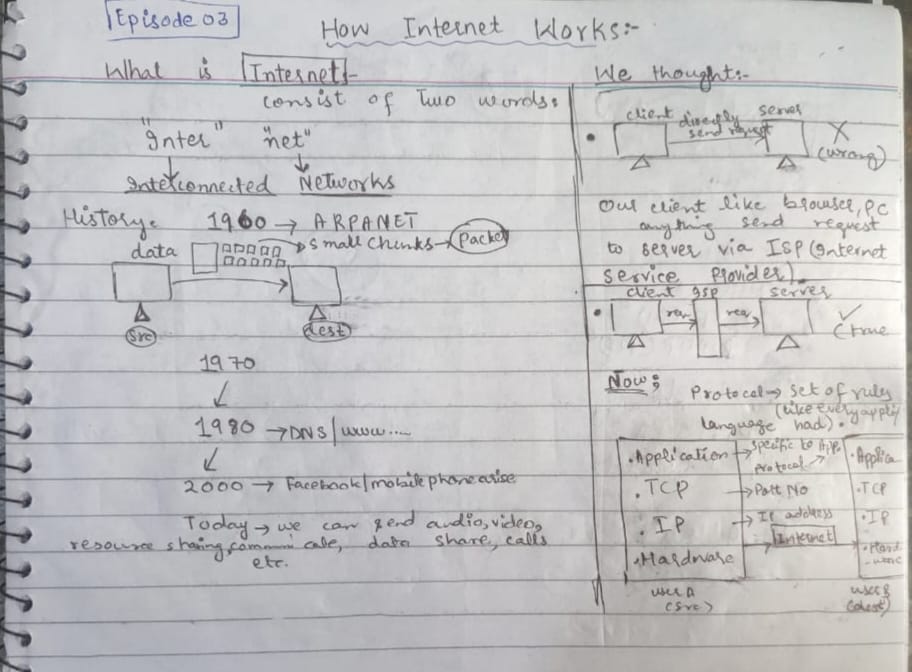 Episode 03
How Internet Works:-
What is Internet:-
consist of Two words:
"Inter" "net"
Interconnected Networks
History:- 1960 → ARPANET
data → small chunks → Packet
src
dest
1970
↓
1980 → DNS/www....
↓
2000 → Facebook/mobile phone arise
Today → we can send audio, video,
resource sharing, data share, calls
etc.
We thought:-
client directly send request server
X (wrong)
Our client like browser, PC
anything send request
to server via ISP (Internet
service Provider).
client ISP server
req → req →
✓ (true
Now:
Protocol → set of rules
(Like every
language had).
.Application → specific to App. Protocol → .Applica
.TCP → Port No .TCP
.IP → IP address .IP
.Hardware → Internet → .Hard
-ware
user A
(src)
user B
(dest)